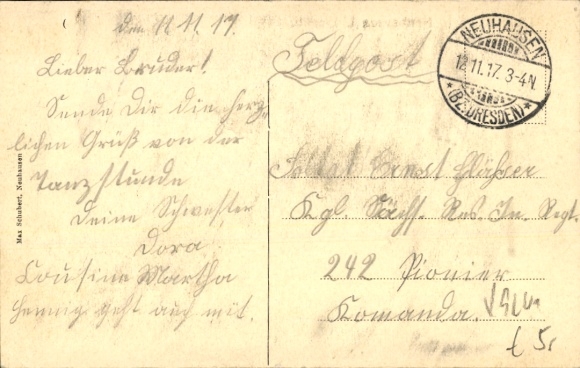 den 11.11.17.
Lieber Bruder!
Sende Dir die herz-
lichen Grüß von der
Tanzstunde
Deine Schwester
Dora
Cousine Martha
Hennig geht auch mit.
Max Schubert, Neuhausen
Feldpost
NEUHAUSEN
12.11.17. 3-4N
*(BZ. DRESDEN)*
Ernst Gläßer
Kgl. Sächs. Res. In. Regt.
242 Pionier
Komanda.